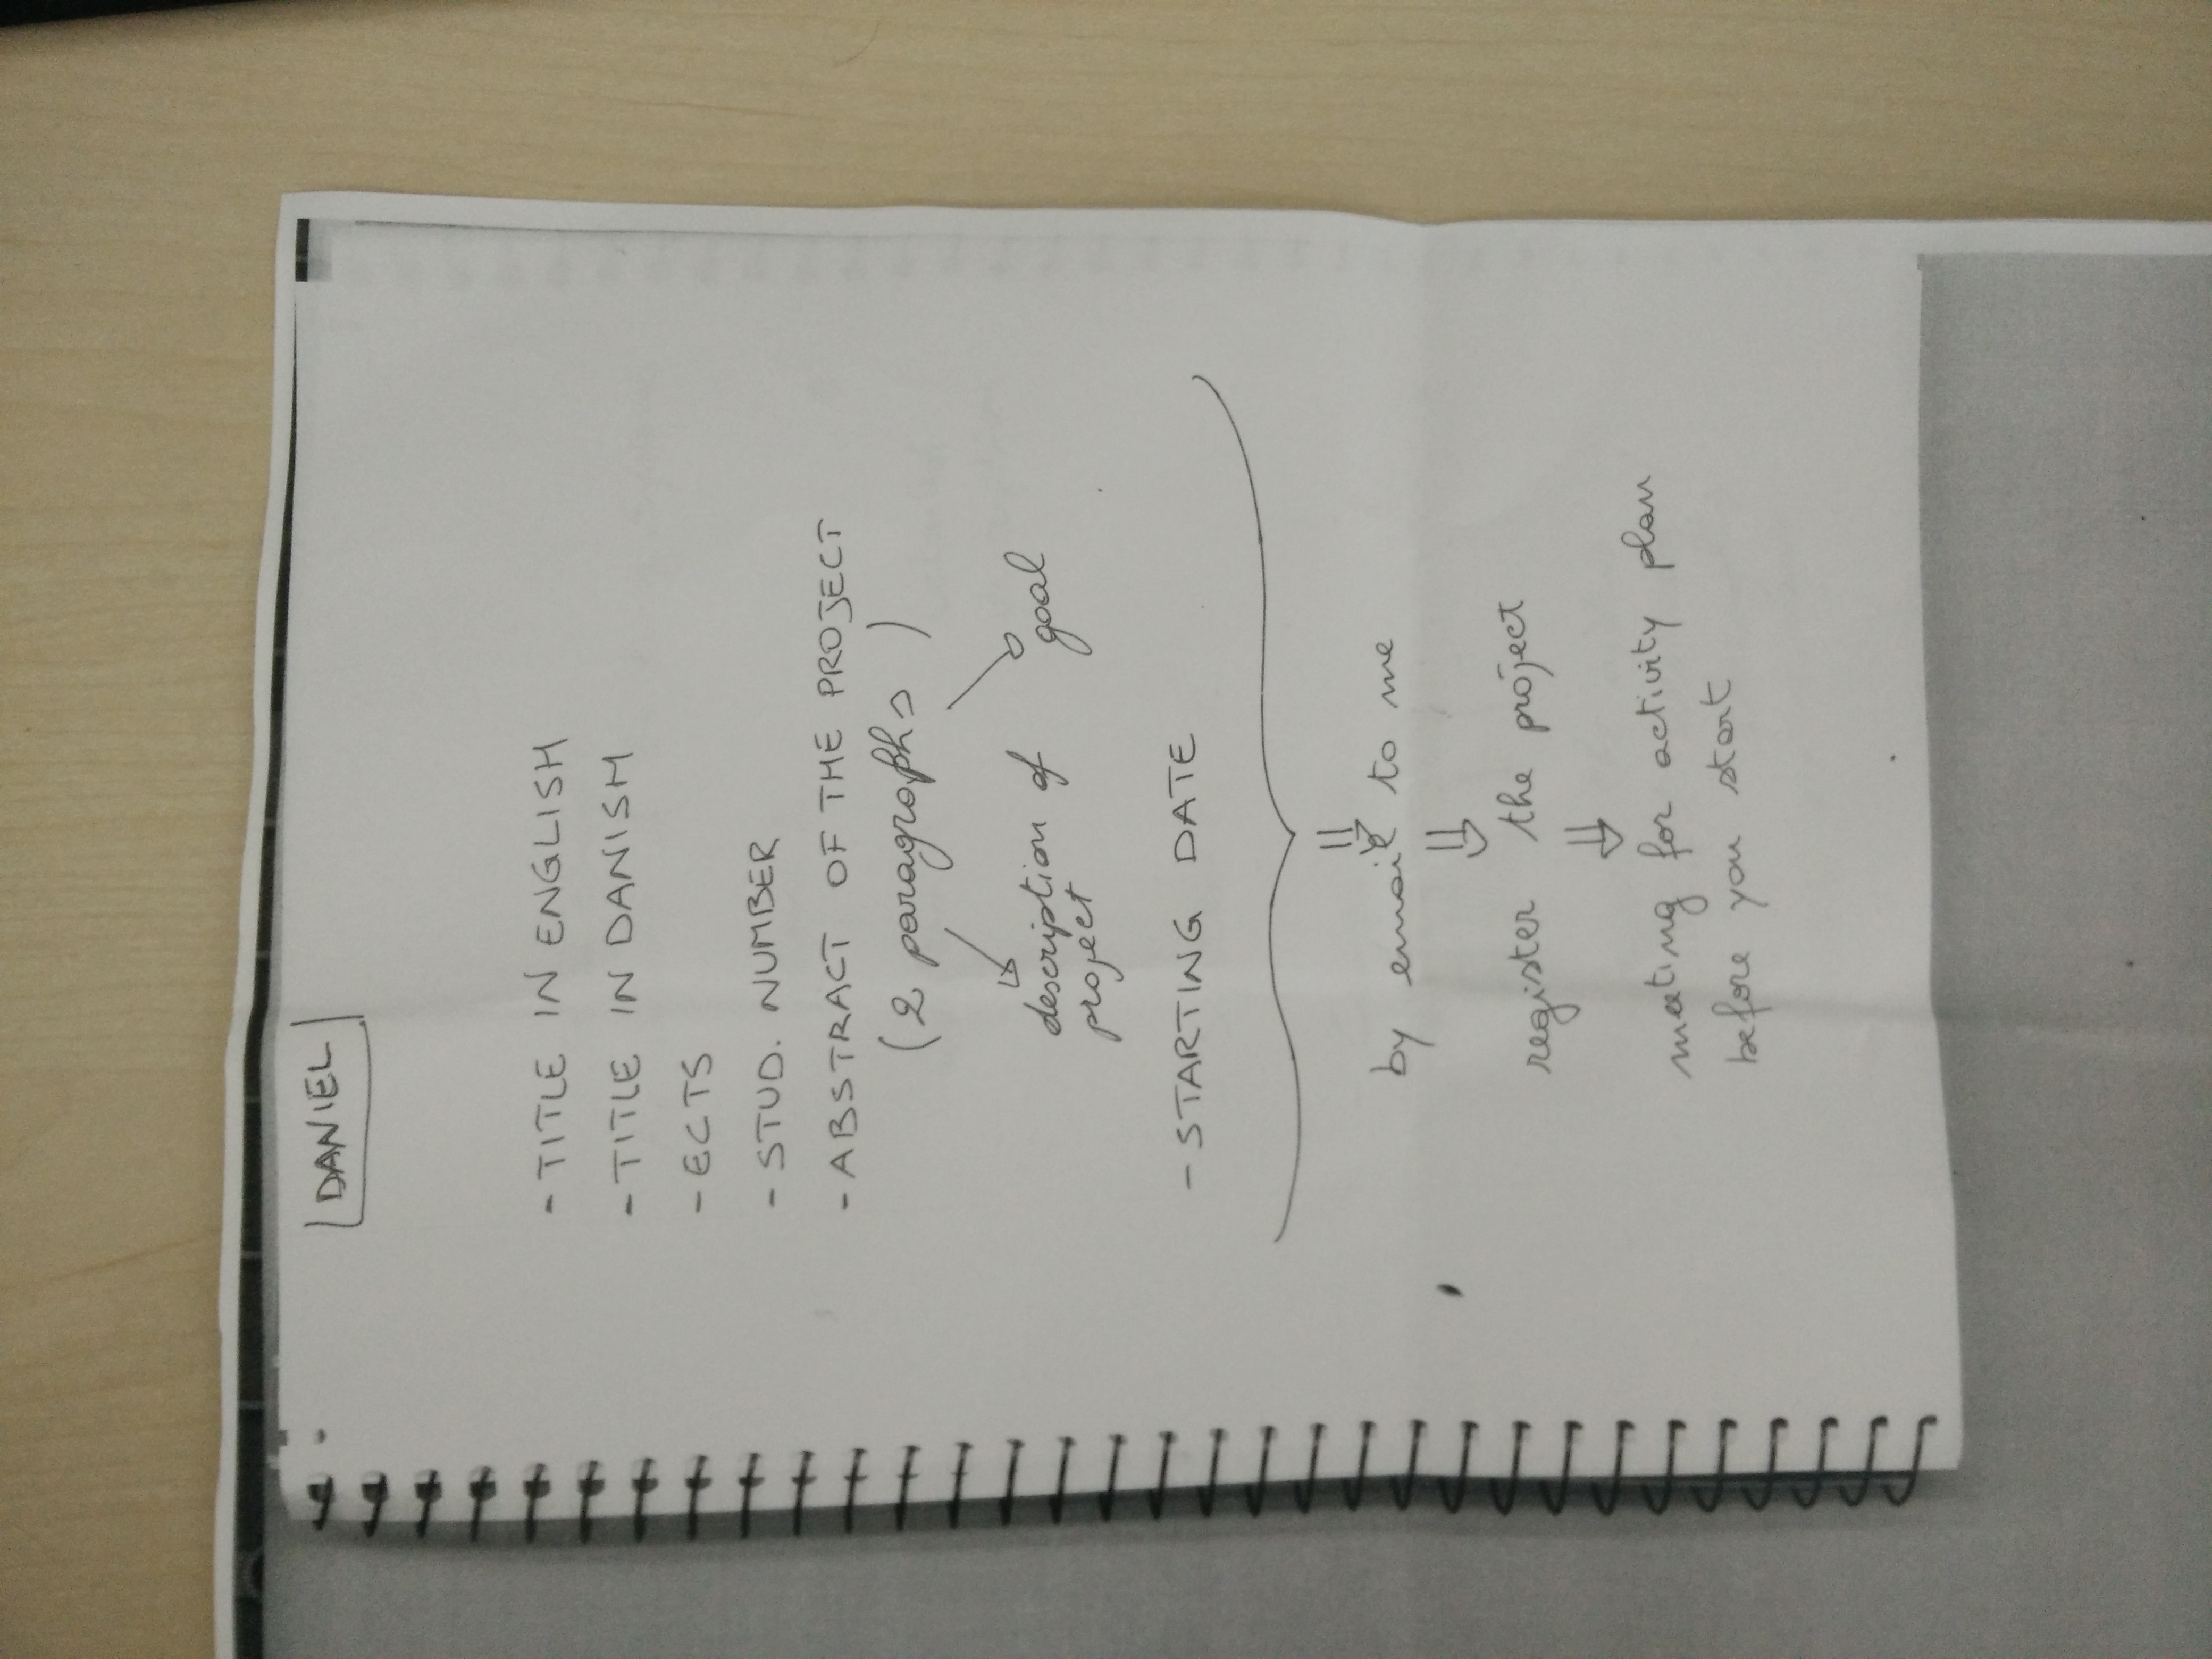 DANIEL
- TITLE IN ENGLISH
- TITLE IN DANISH
- ECTS
- STUD. NUMBER
- ABSTRACT OF THE PROJECT
(2 paragraphs)
description of
project
goal
- STARTING DATE
by email to me
register the project
meeting for activity plan
before you start